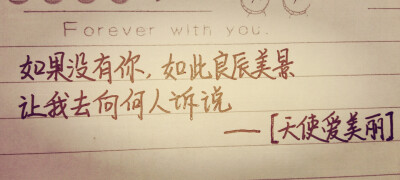 Forever with you.
如果没有你，如此良辰美景
让我去向何人诉说
—[天使爱美丽]